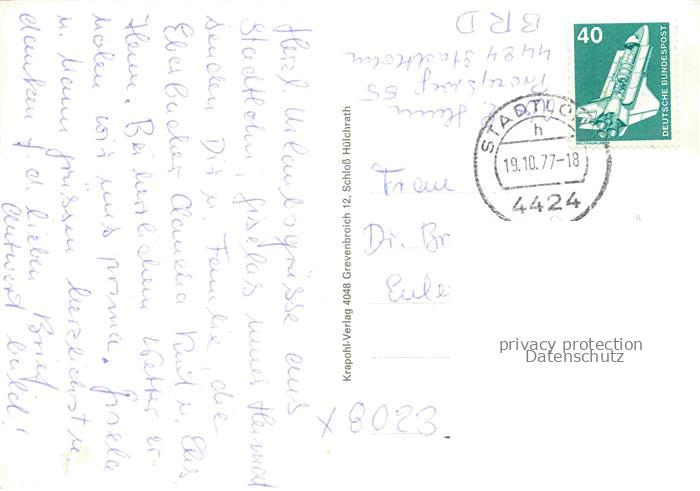 Herzl. Urlaubsgrüsse aus
Stadtlohn, Giselas neuer Heimat
senden Dir u. Familie, die
Eberbacher Claudia Kurt u. Els.
Herm. Bei herrlichem Wetter er-
holen wir uns prima. Gisela
u. Mann grüssen herzlichst u.
danken f. d. lieben Brief
Antwort bald!
Krapohl-Verlag 4048 Grevenbroich 12, Schloß Hülchrath
55
4424 Stadtlohn
BRD
40
DEUTSCHE BUNDESPOST
STADTLO
h
19.10.77-18
4424
Frau
Dr. Br
Eule
X 8023
privacy protection
Datenschutz